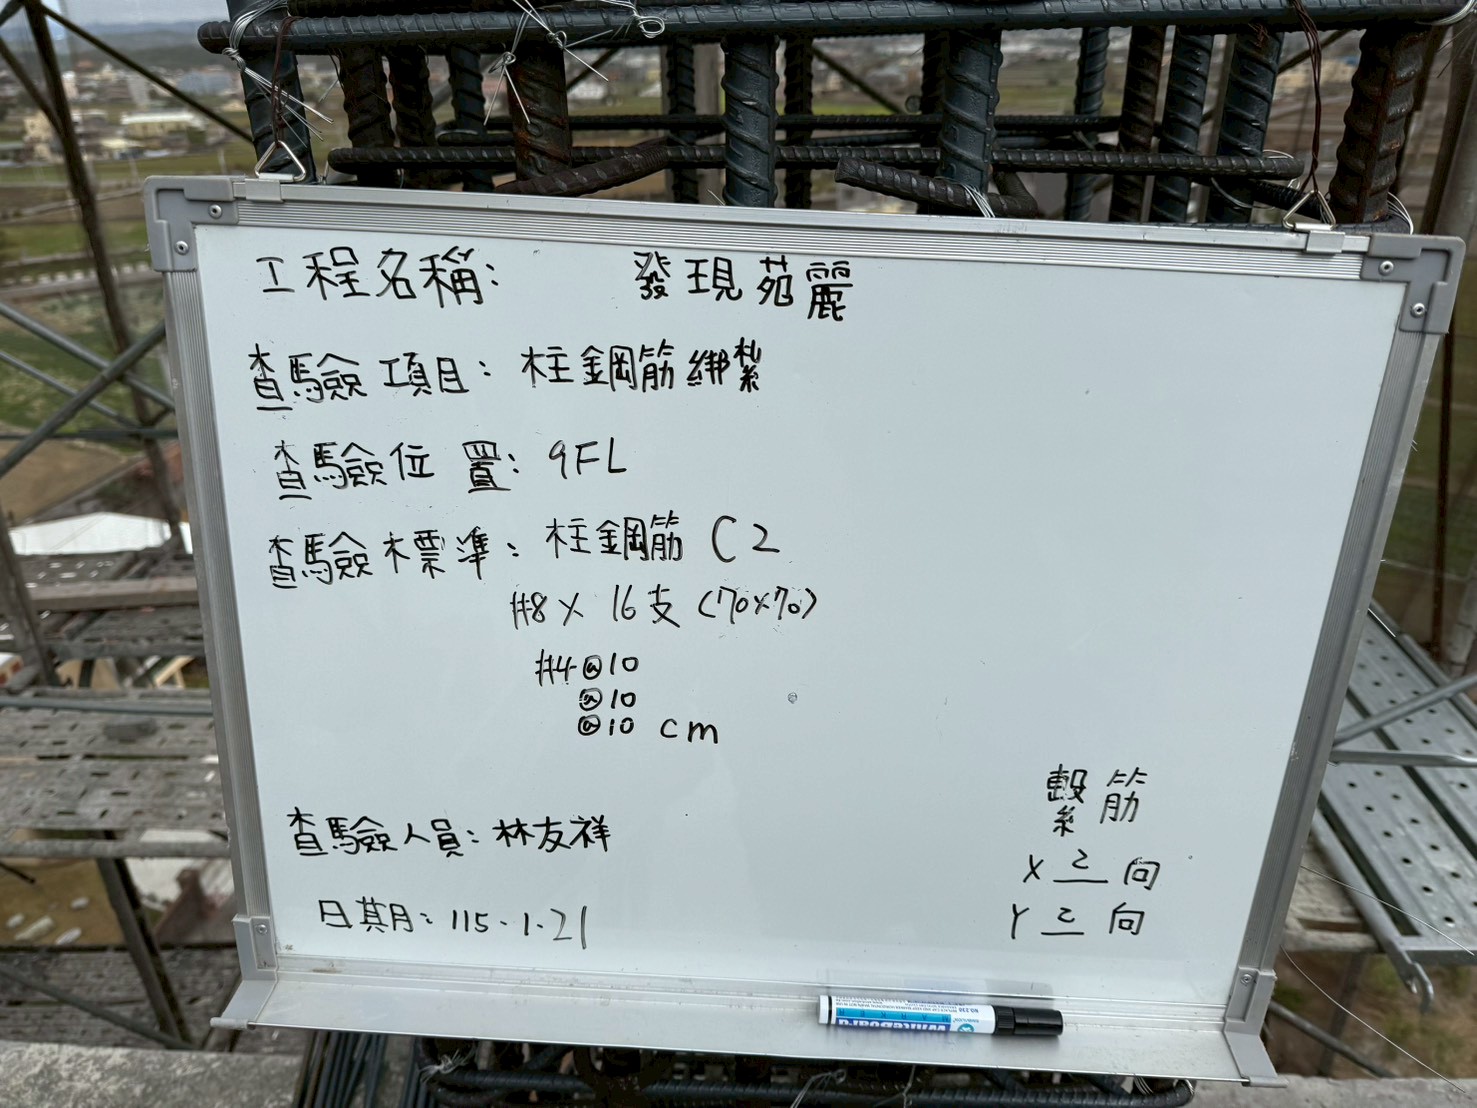 工程名稱: 發現苑麗
查驗項目: 柱鋼筋綁紮
查驗位置: 9FL
查驗標準: 柱鋼筋 C2
#8 X 16支 (70x70)
#4@10
@10
@10 cm
繫筋
X 2 向
Y 2 向
查驗人員: 林友祥
日期: 115.1.21
WhiteBoard